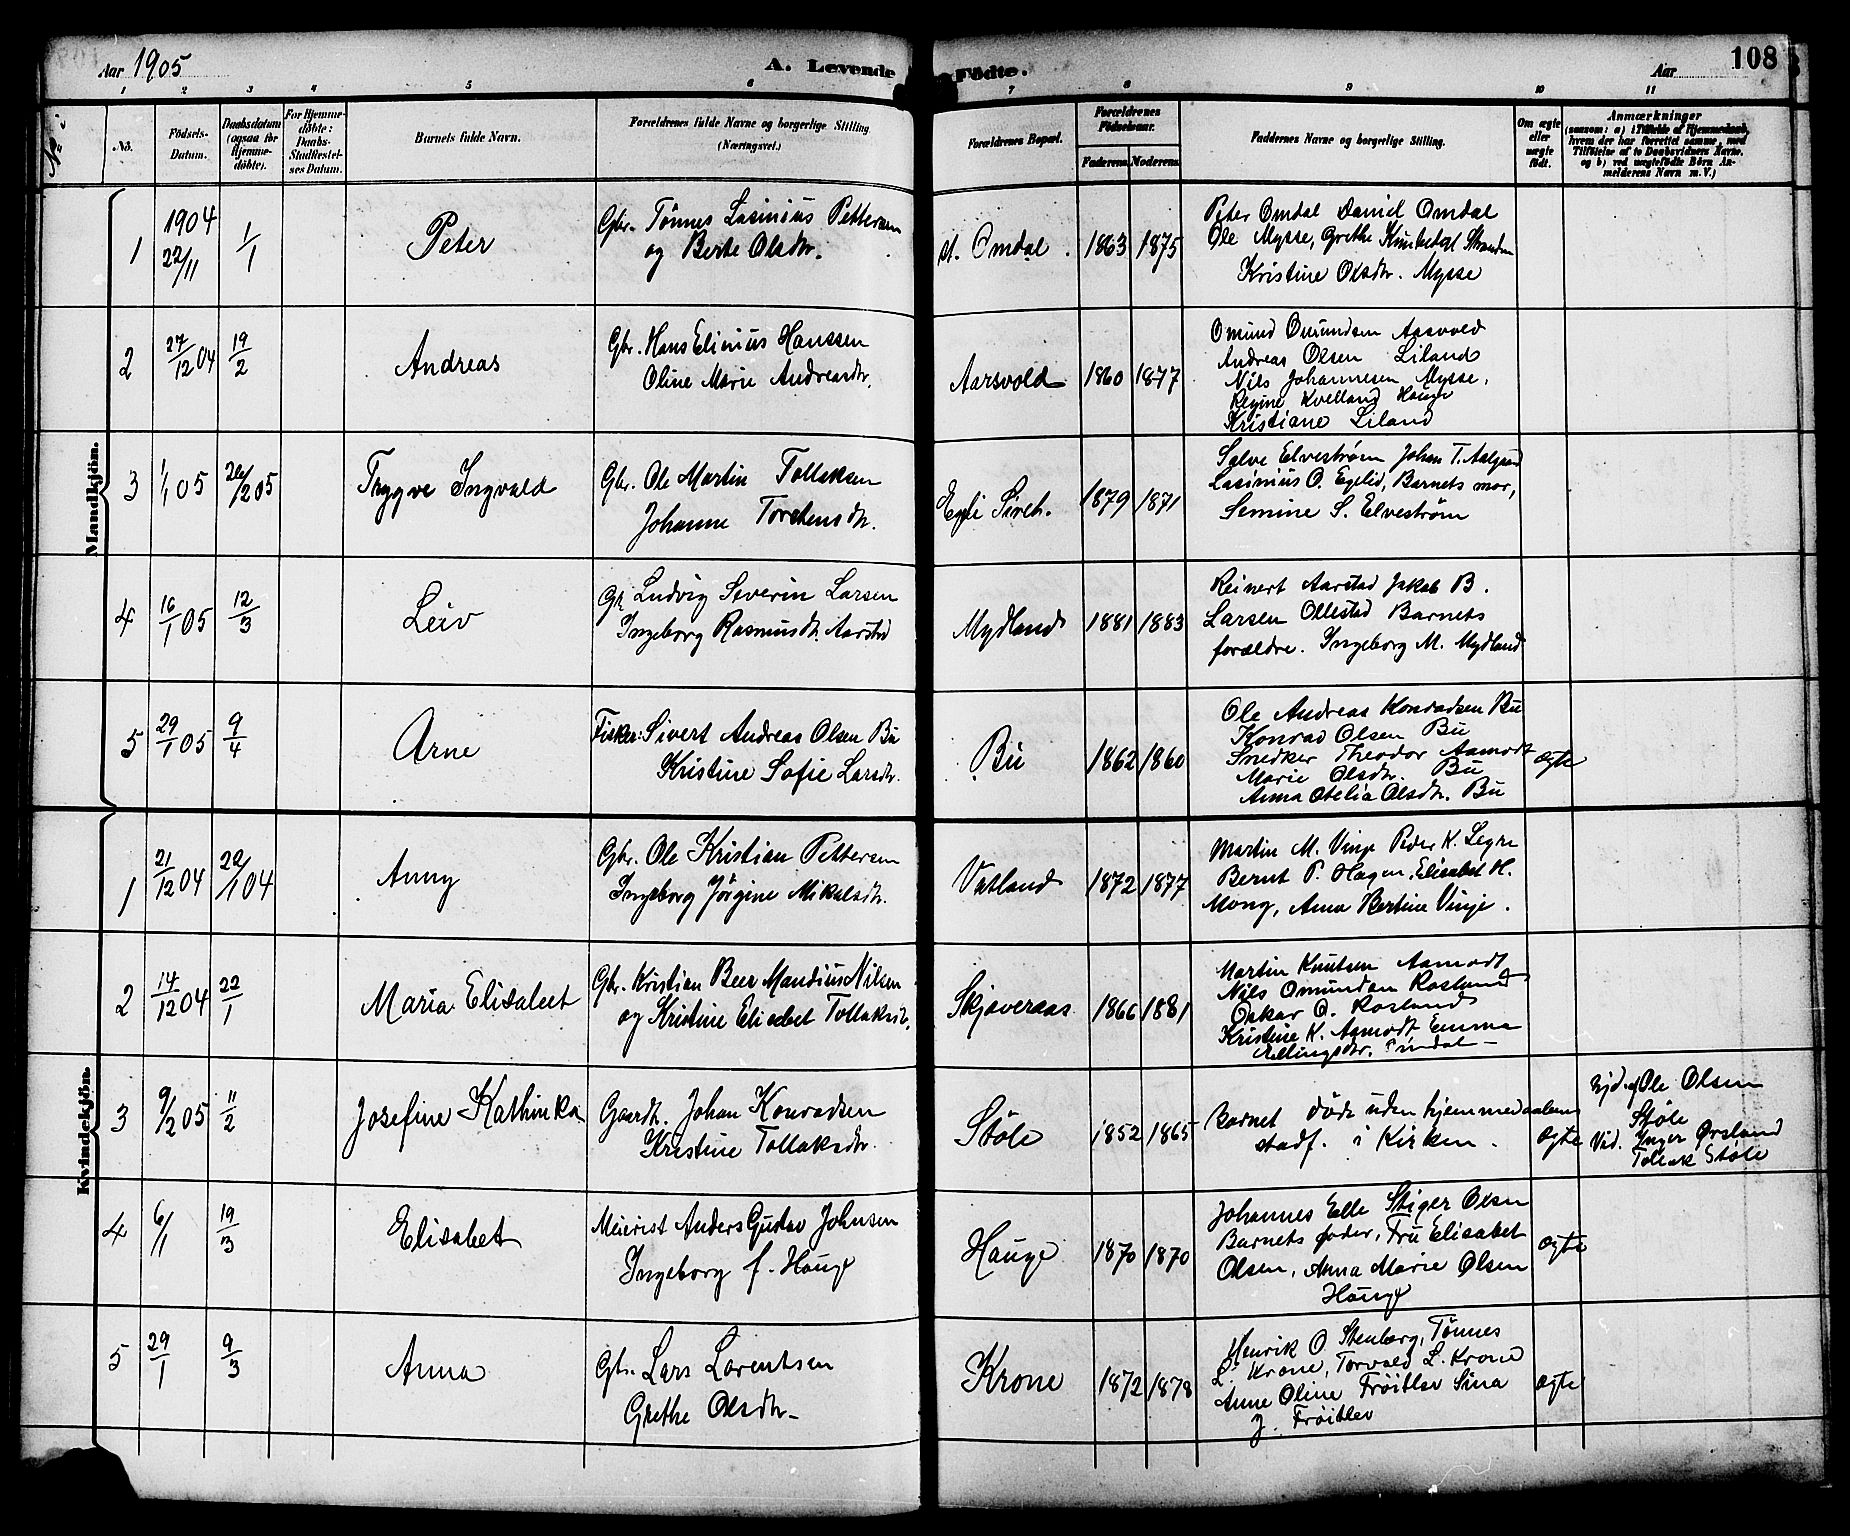 Aar 1905 A. Levende Födte. Aar 108
1 2 3 4 5 6 7 8 9 10 11
No.
Födsels-
Datum.
Daabsdatum
(ogsaa for
Hjemme-
döbte).
For Hjemme-
döbte:
Daabs-
Stadfæstel-
ses Datum.
Barnets fulde Navn.
Forældrenes fulde Navne og borgerlige Stilling
(Næringsvei.)
Forældrenes Bopæl.
Forældrenes
Födselsaar.
Faderens. Moderens.
Faddernes Navne og borgerlige Stilling.
Om ægte
eller
uægte
født.
Anmærkninger
(saasom: a) i Tilfælde af Hjemmedaab,
hvem der har forrettet samme, med
Tilföielse af to Daabsvidners Navne,
og b) ved uægtefödte Börn An-
melderens Navn m. V.)
Mandkjön.
1 1904 22/11 1/1 Peter
Gbr. Tönnes Lasinius Pettersen
og Berte Olsdtr.
st. Omdal 1863 1875
Peter Omdal Daniel Omdal
Ole Mysse, Grethe Stranden
Kristine Olsdtr. Mysse
2 27/12 04 19/2 Andreas
Gbr. Hans Elinius Hanssen
Oline Marie Andreasdtr.
Aarsvold 1860 1877
Omund Omundsen Aasvold
Andreas Olsen Liland
Nils Johannesen Mysse,
Regine Kvelland Hauge
Kristiane Liland
3 1/1 05 26/2 05 Trygve Ingvald
Gbr. Ole Martin Tollaksen
Johanne Torstensdtr.
Egli Sireh. 1879 1871
Salve Elvestrøm Johan T. Aalgaard
Lasinius O. Egelid, Barnets mor,
Semine S. Elvestrøm
4 16/1 05 12/3 Leiv
Gbr Ludvig Severin Larsen
Ingeborg Rasmusdtr. Aarstad
Mydland 1881 1883
Reinert Aarstad Jakob B.
Larsen Ollestad Barnets
forældre. Ingeborg M. Mydland
5 29/1 05 9/4 Arne
Fisker: Sivert Andreas Olsen Bu
Kristine Sofie Larsdtr.
Bu 1862 1860
Ole Andreas Konradsen Bu
Konrad Olsen Bu
Snedker Theodor Aamodt
Marie Olsdtr. Bu
Anna Otelia Olsdtr. Bu
ægte
Kvindekjön.
1 21/12 04 22/1 04 Anny
Gbr. Ole Kristian Pettersen
Ingeborg Jörgine Mikalsdtr.
Vatland 1872 1877
Martin M. Vinje Peder K. Segre
Bernt P. Hagen, Elisabet H.
Mong, Anna Bertine Vinje.
2 14/12 04 22/1 Maria Elisabet
Gbr. Kristian Beer Mandius Nilsen
og Kristine Elisabet Tollaksd.
Skjæveraas 1866 1881
Martin Knutsen Aamodt
Nils Omundsen Rosland
Oskar O. Rosland
Kristine K. Aamodt Emma
Ellingsdtr.
3 9/2 05 11/2 Josefine Kathinka
Gaardb. Johan Konradsen
Kristine Tollaksdtr.
Støle 1852 1865
Barnet døde uden hjemmedaabens
stadf. i Kirken.
ægte
Hjd. af Ole Olsen
Støle
Vid. Inger Ørsland
Tollak Støle
4 6/1 19/3 Elisabet
Meierist Anders Gustav Johnsen
Ingeborg f. Hauge
Hauge 1870 1870
Johannes Elle Stiger Olsen
Barnets fader, Fru Elisabet
Olsen, Anna Marie Olsen
Hauge
ægte
5 29/1 9/3 Anna
Gbr. Lars Lorentsen
Grethe Olsdtr.
Krone 1872 1878
Henrik O. Stenberg, Tønnes
L. Krone, Torvald L. Krone
Anne Oline Frøitlev Sina
J. Frøitlev
ægte